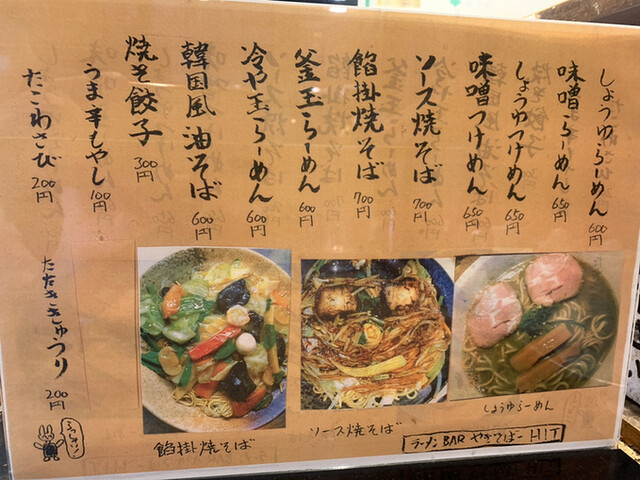 しょうゆらーめん 600円
味噌らーめん 650円
しょうゆつけめん 650円
味噌つけめん 650円
ソース焼そば 700円
餡掛焼そば 700円
釜玉らーめん 600円
冷や玉らーめん 600円
韓国風油そば 600円
焼き餃子 300円
うま辛もやし 100円
たこわさび 200円
たたききゅうり 200円
餡掛焼そば
ソース焼そば
しょうゆらーめん
ラーメンBAR やきそばー HIT